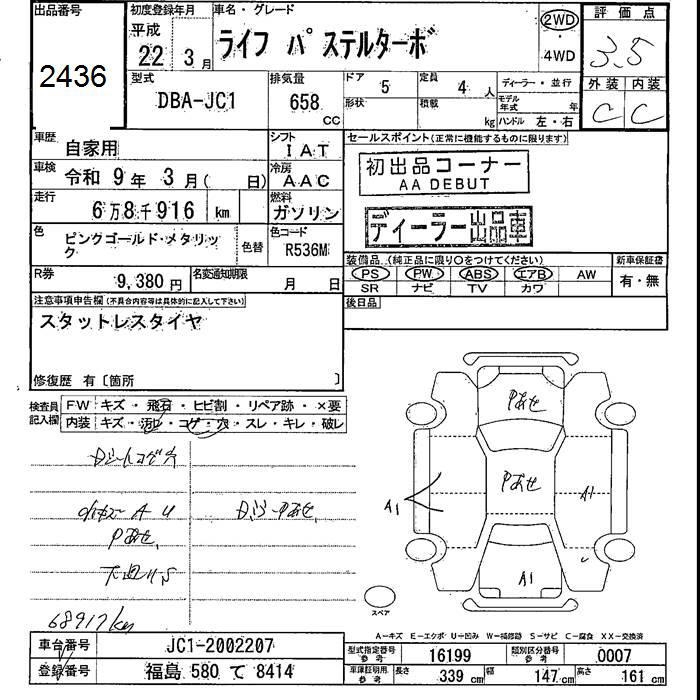 出品番号
2436
初度登録年月
平成
22 3月
車名・グレード
ライフ パステルターボ
2WD
4WD
評価点
3.5
型式
DBA-JC1
排気量
658
cc
ドア 5
定員 4 人
形状
積載 kg
ディーラー・並行
モデル年式 年
ハンドル 左・右
外装 内装
C C
車歴 自家用
シフト IAT
車検 令和 9年 3月( 日)
冷房 AAC
走行 6万8千916 km
燃料 ガソリン
色 ピンクゴールド・メタリック
色替
色コード R536M
R券 9,380円
名変通知期限 月 日
セールスポイント(正常に機能するものに限ります)
初出品コーナー
AA DEBUT
ディーラー出品車
装備品 (純正品に限り○をつけてください)
新車保証書
PS PW ABS エアB AW
SR ナビ TV カワ
有・無
後日品
注意事項申告欄(不具合内容等は具体的に記入して下さい)
スタットレスタイヤ
修復歴 有〔箇所 〕
検査員記入欄
FW キズ・飛石・ヒビ割・リペア跡・×要
内装 キズ・汚れ・コゲ・穴・スレ・キレ・破レ
A U
Pあせ
68917km
Pあせ
Pあせ
A1
A1
A1
スペア
A－キズ E－エクボ U－凹み W－補修跡 S－サビ C－腐食 XX－交換済
車台番号 JC1-2002207
登録番号 福島 580 て 8414
型式指定番号 参考 16199
類別区分番号 参考 0007
車庫証明用 参考 長さ 339 cm 幅 147 cm 高さ 161 cm